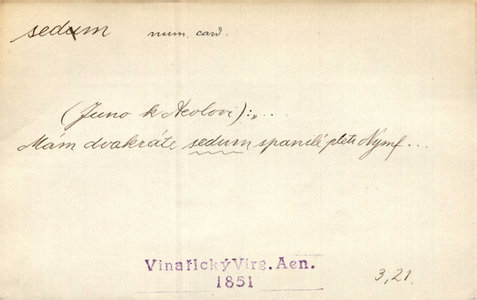 sedum num. card.
(Juno k Aeolovi): „...
Mám dvakráte sedum spanilé pleti Nymf...
Vinařický Virg. Aen.
1851
3,21.